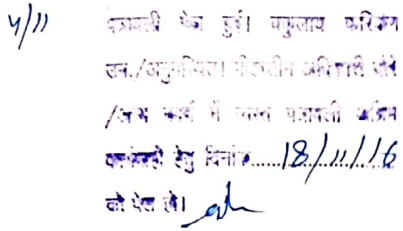 4/11 पत्रावली पेश हुई। वकुलाय फरिकेन
उप./अनुपस्थित। पीठासीन अधिकारी दौरे
/अन्य कार्य में व्यस्त पत्रावली अग्रिम
कार्यवाही हेतु दिनांक.....18/11/16
को पेश हो।